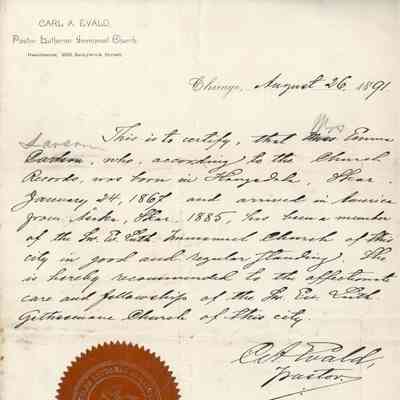 CARL A. EVALD,
Pastor Lutheran Immanuel Church
Residence, Sedgwick Street
Chicago, August 26, 1891
This is to certify, that Miss Mrs Emma
Larson
Carlson, who, according to the Church
Records, was born in Kongsdala, Skar.
January, 24, 1867 and arrived in America
from Skar. 1885, has been a member
of the Sw. Ev. Luth Immanuel Church of this
city in good and regular standing. She
is hereby recommended to the affectionate
care and fellowship of the Sw. Ev. Luth
Gethsemane Church of this city.
C.A. Evald,
Pastor.